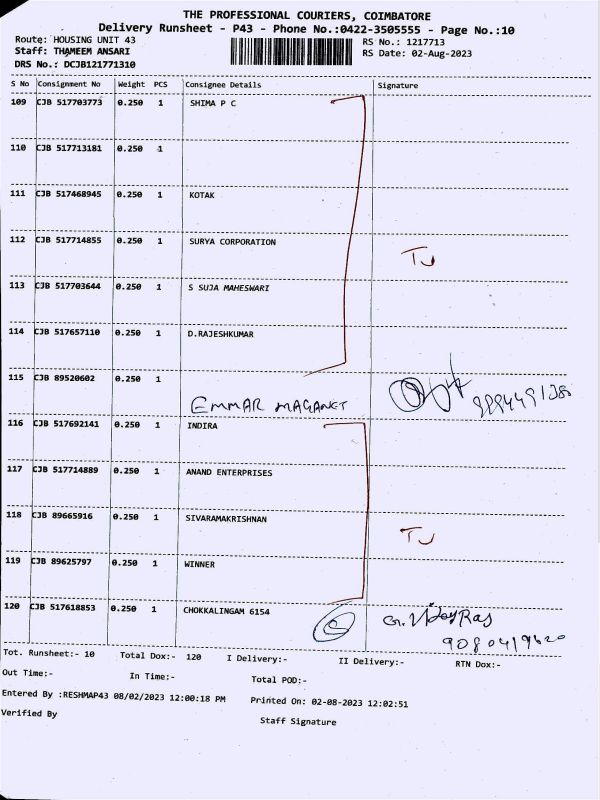 THE PROFESSIONAL COURIERS, COIMBATORE
Delivery Runsheet - P43 - Phone No.:0422-3505555 - Page No.:10
Route: HOUSING UNIT 43
RS No.: 1217713
Staff: THAMEEM ANSARI
RS Date: 02-Aug-2023
DRS No.: DCJB121771310
S No Consignment No Weight PCS Consignee Details Signature
109 CJB 517703773 0.250 1 SHIMA P C
110 CJB 517713181 0.250 1
111 CJB 517468945 0.250 1 KOTAK
112 CJB 517714855 0.250 1 SURYA CORPORATION
TJ
113 CJB 517703644 0.250 1 S SUJA MAHESWARI
114 CJB 517657110 0.250 1 D.RAJESHKUMAR
115 CJB 89520602 0.250 1
EMMAR MAGANET
116 CJB 517692141 0.250 1 INDIRA
117 CJB 517714889 0.250 1 ANAND ENTERPRISES
118 CJB 89665916 0.250 1 SIVARAMAKRISHNAN
TJ
119 CJB 89625797 0.250 1 WINNER
120 CJB 517618853 0.250 1 CHOKKALINGAM 6154
Tot. Runsheet:- 10 Total Dox:- 120 I Delivery:- II Delivery:- RTN Dox:-
Out Time:- In Time:- Total POD:-
Entered By :RESHMAP43 08/02/2023 12:00:18 PM Printed On: 02-08-2023 12:02:51
Verified By Staff Signature